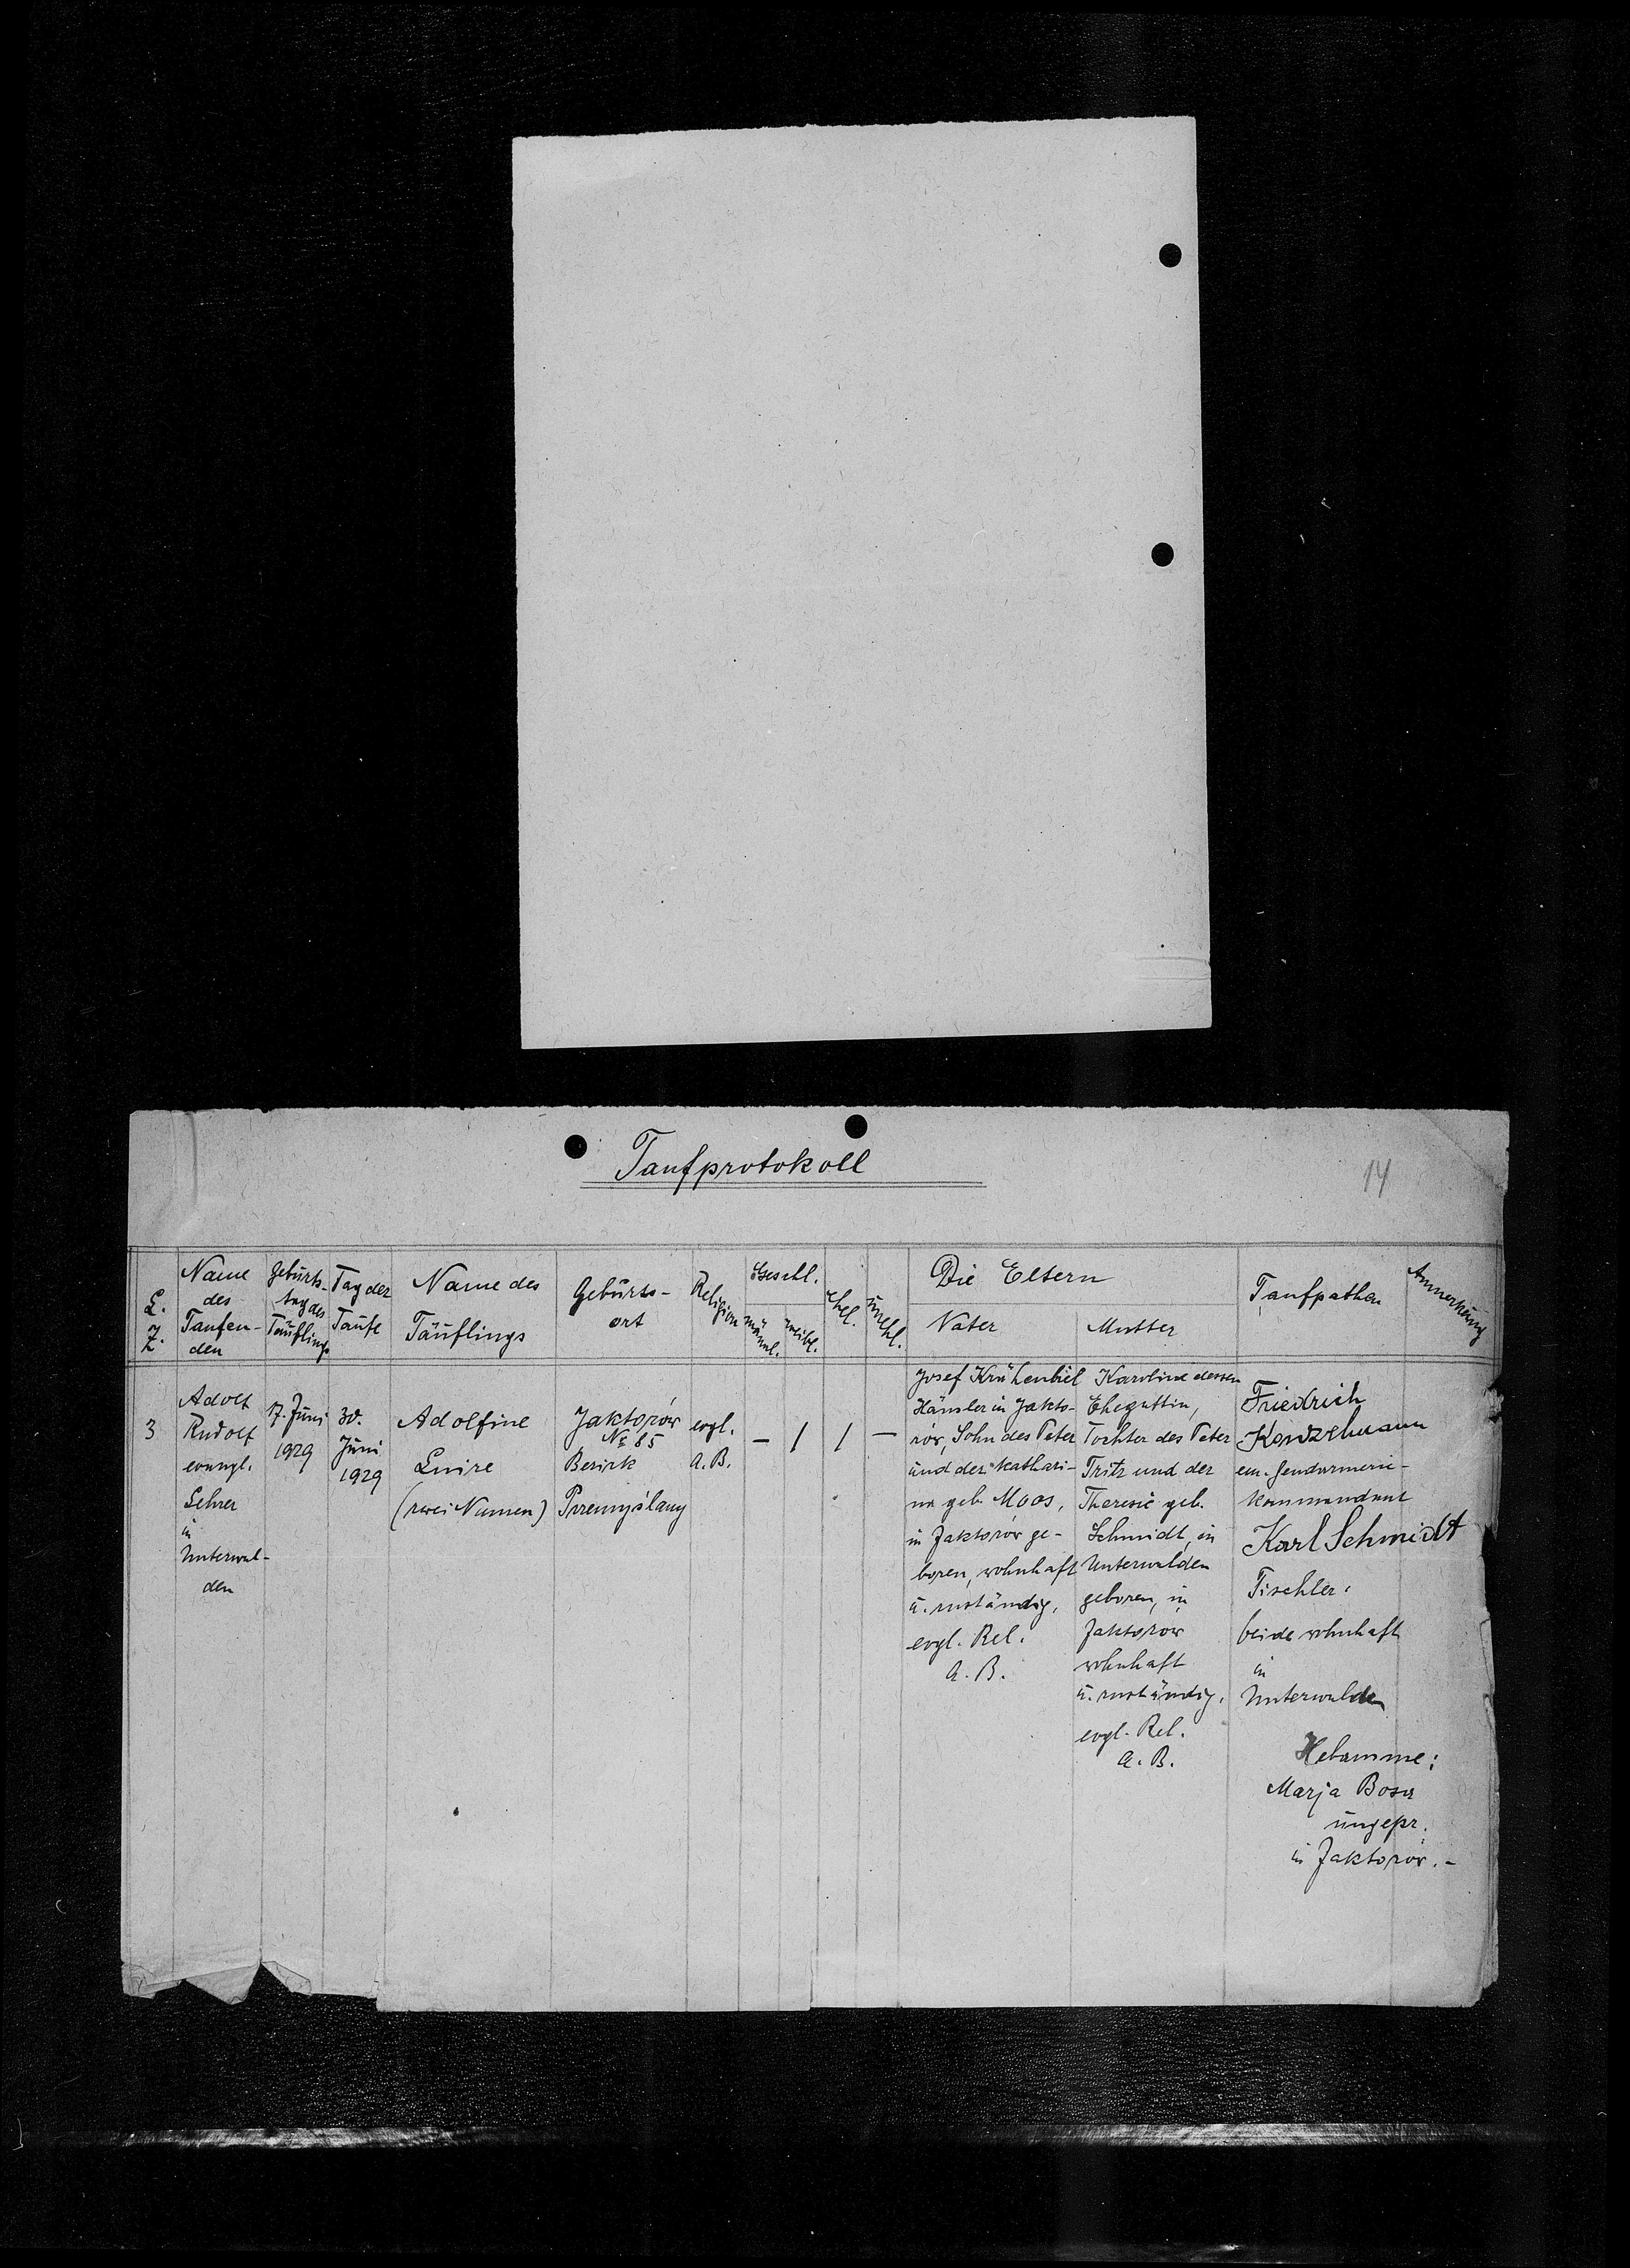 Taufprotokoll
14
L.
Z.
Name
des
Taufen-
den
Geburts-
tag des
Täuflings
Tag der
Taufe
Name des
Täuflings
Geburts-
ort
Religion
Geschl.
männl.
weibl.
ehel.
unehl.
Die Eltern
Vater
Mutter
Taufpathen
Anmerkung
3
Adolf
Rudolf
evangl.
Lehrer
in
Unterwal-
den
17. Juni
1929
30.
Juni
1929
Adolfine
Luise
(zwei Namen)
Jaktorów
№ 85
Bezirk
Przemyślany
evgl.
A. B.
—
1
1
—
Josef Krühenbiel
Häusler in Jakto-
rów, Sohn des Peter
und der Kathari-
na geb. Moos,
in Jaktorów ge-
boren, wohnhaft
u. zuständig,
evgl. Rel.
A. B.
Karoline dessen
Ehegattin,
Tochter des Peter
Tritz und der
Theresie geb.
Schmidt, in
Unterwalden
geboren, in
Jaktorow
wohnhaft
u. zuständig,
evgl. Rel.
A. B.
Friedrich
Konzelmann
em. Gendarmerie-
kommandant
Karl Schmidt
Tischler,
beide wohnhaft
in
Unterwalden
Hebamme:
Marja
ungepr.
in Jaktorów.-